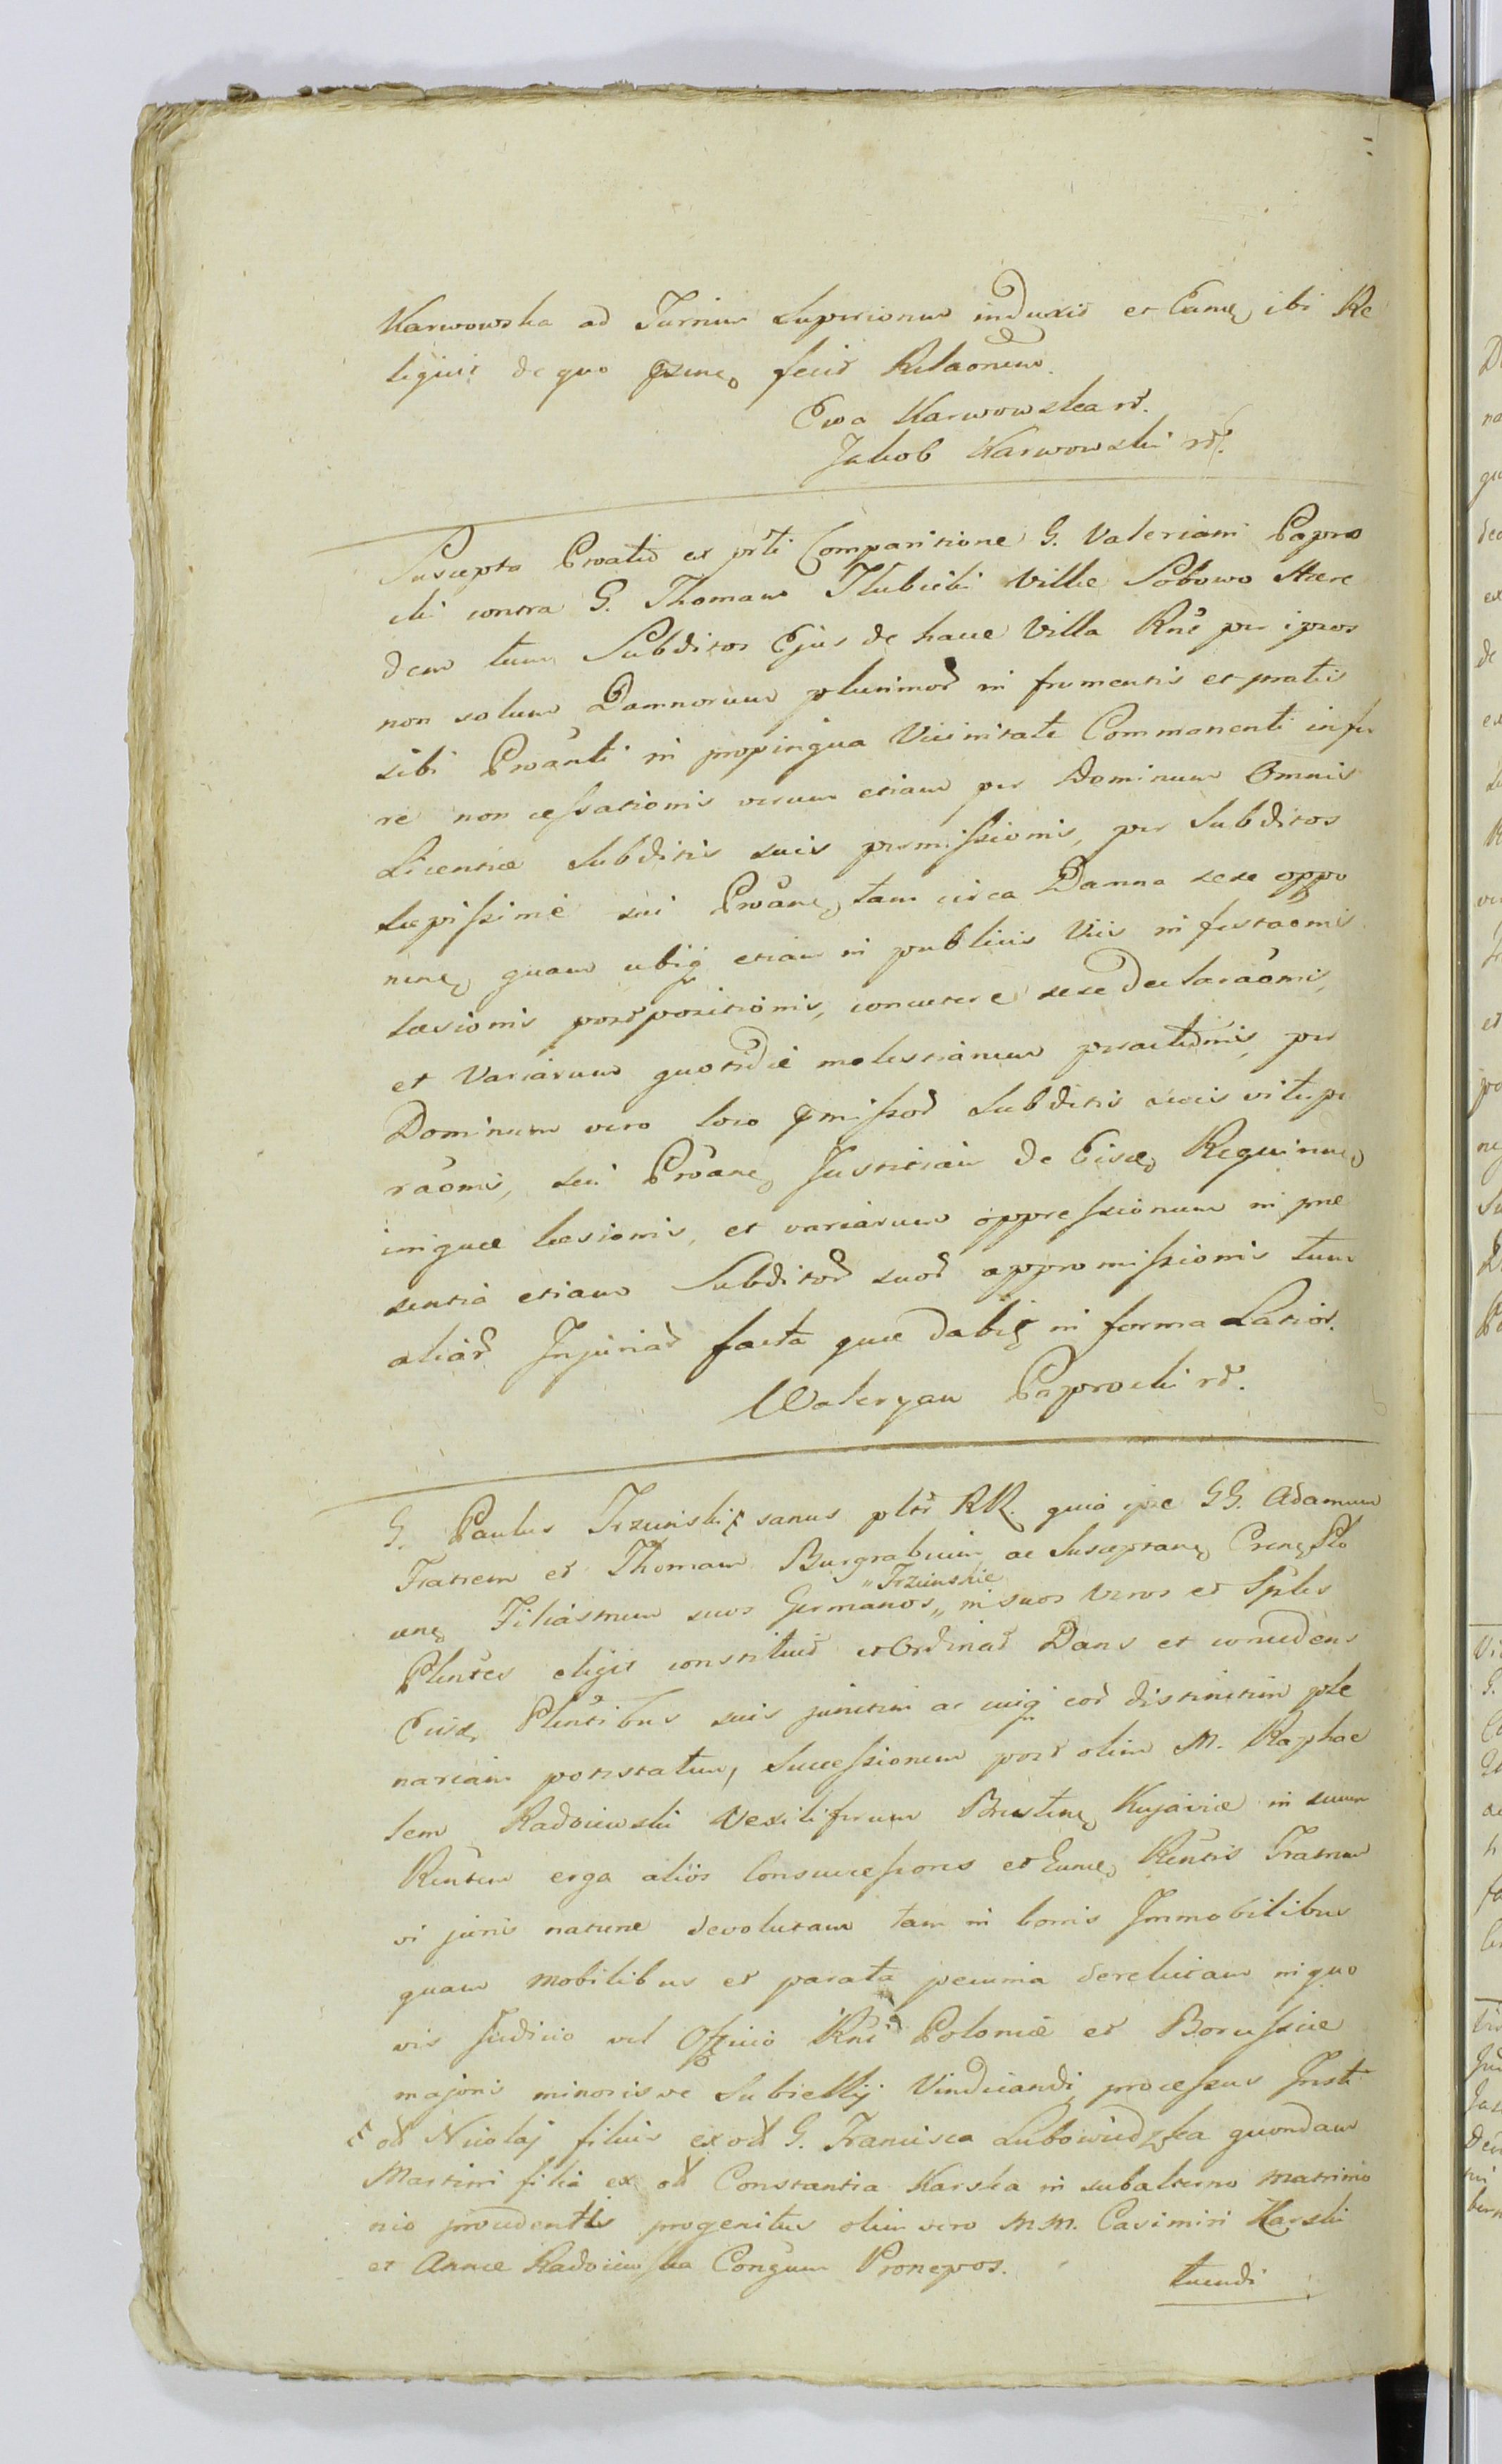 Karwowska ad Turrim Superiorem induxit et Eamq ibi Re
liquit de quo pzensq fecit Relaonem.
Ewa Karwowska rd.
Jakob Karwowski rd.
Suscepta Prŏatio ex pr̆ti Comparitione G. Valeriani Papro
cki contra G. Thomam Hlubicki Villae Sobowo Haere
dem tum Subditos Ejus de hacce Villa Rnĕ per ipsos
non solum Damnorum plurimor in frumentis et pratis
sibi Prŏanti in propinqua Vicinitate Commanenti infer
re non cessationis verum etiam per Dominum Omnis
Licentiae Subditis suis permissionis, per Subditos
saepissime sui Prŏanq tam circa Damna sese oppo
nenq quam ubiq etiam in publicis Viis infestaonis
laesionis postpositionis, concutere sese declaraŏnis,
et Variarum quotidie molestiarum peractionis, per
Dominum vero loco pmissor Subditis suis vitupe
raŏnis, sui Prŏanq Justitiam de Eisdq Requirenq
iniquae laesionis, et variarum oppressionum in prae
sentia etiam Subditor suor appromissionis tum
aliar Injuriar facta quae dabiq in forma Latior.
Waleryan Paprocki rd.
G. Paulus Trzcinski sanus pltr RR. quia ipe GG. Adamum
Fratrem et Thomam Burgrabium ac Susceptanq Crenq Plo
cenq Filiasmum suos Germanos „Trzcinskie„ in suos Veros et Sples
Plentes eligit constituit et Ordinat Dans et concedens
Eisdq Plentibus suis junctim ac cuiq eor distinctim ple
nariam potestatem, Successionem post olim M. Raphae
lem Radoiewski Vexiliferum Brestenq Kujaviae in suum
Rentem erga alios Consuccessores et Eumq Rentis Fratrem
vi juris naturae devolutam tam in bonis Immobilibus
quam mobilibus et parata pecunia derelictam in quo
vis Judicio vel Officio Rni Poloniae et Borussiae
majoris minorisve Subsellij Vindicandi, processus Insti
od Nicolaj filius ex od G. Francisca Lubowiedzka quondam
Martini filia ex od Constantia Karska in subalterno matrimo
nio procedentis progenitus olim vero MM. Casimiri Karski
et Annae Radoiewska Conjgum Pronepos.
tuendi